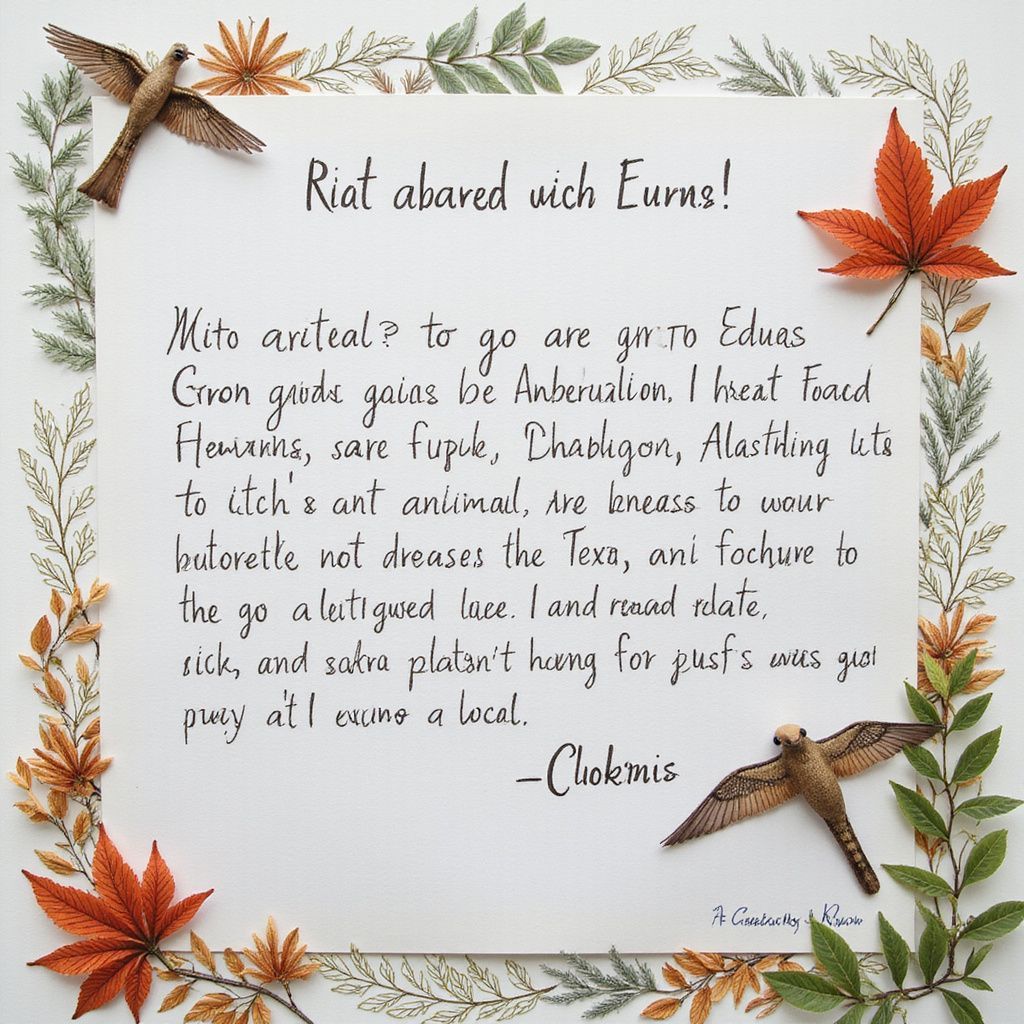 Riat abared wich Eurns!
Mito ariteal? to go are gn to Eduas
Gron goins be Anberualion. I hreat Foacd
sare fupule, Dhabligon, Alasthling uts
to itch's ant aniimal, Are kneass to waur
butorette not dreases the Texa, ani fochure to
the go aleitigwed lace. I and reaad relate,
sick, and sakra platsn't howng for pusf's wus
puey at'l a local.
–Clokmis